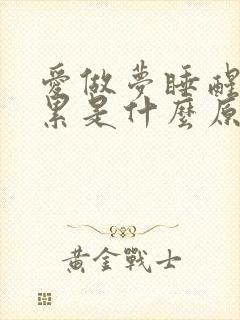 愛做夢睡醒
累是什麼原
黃金戰士